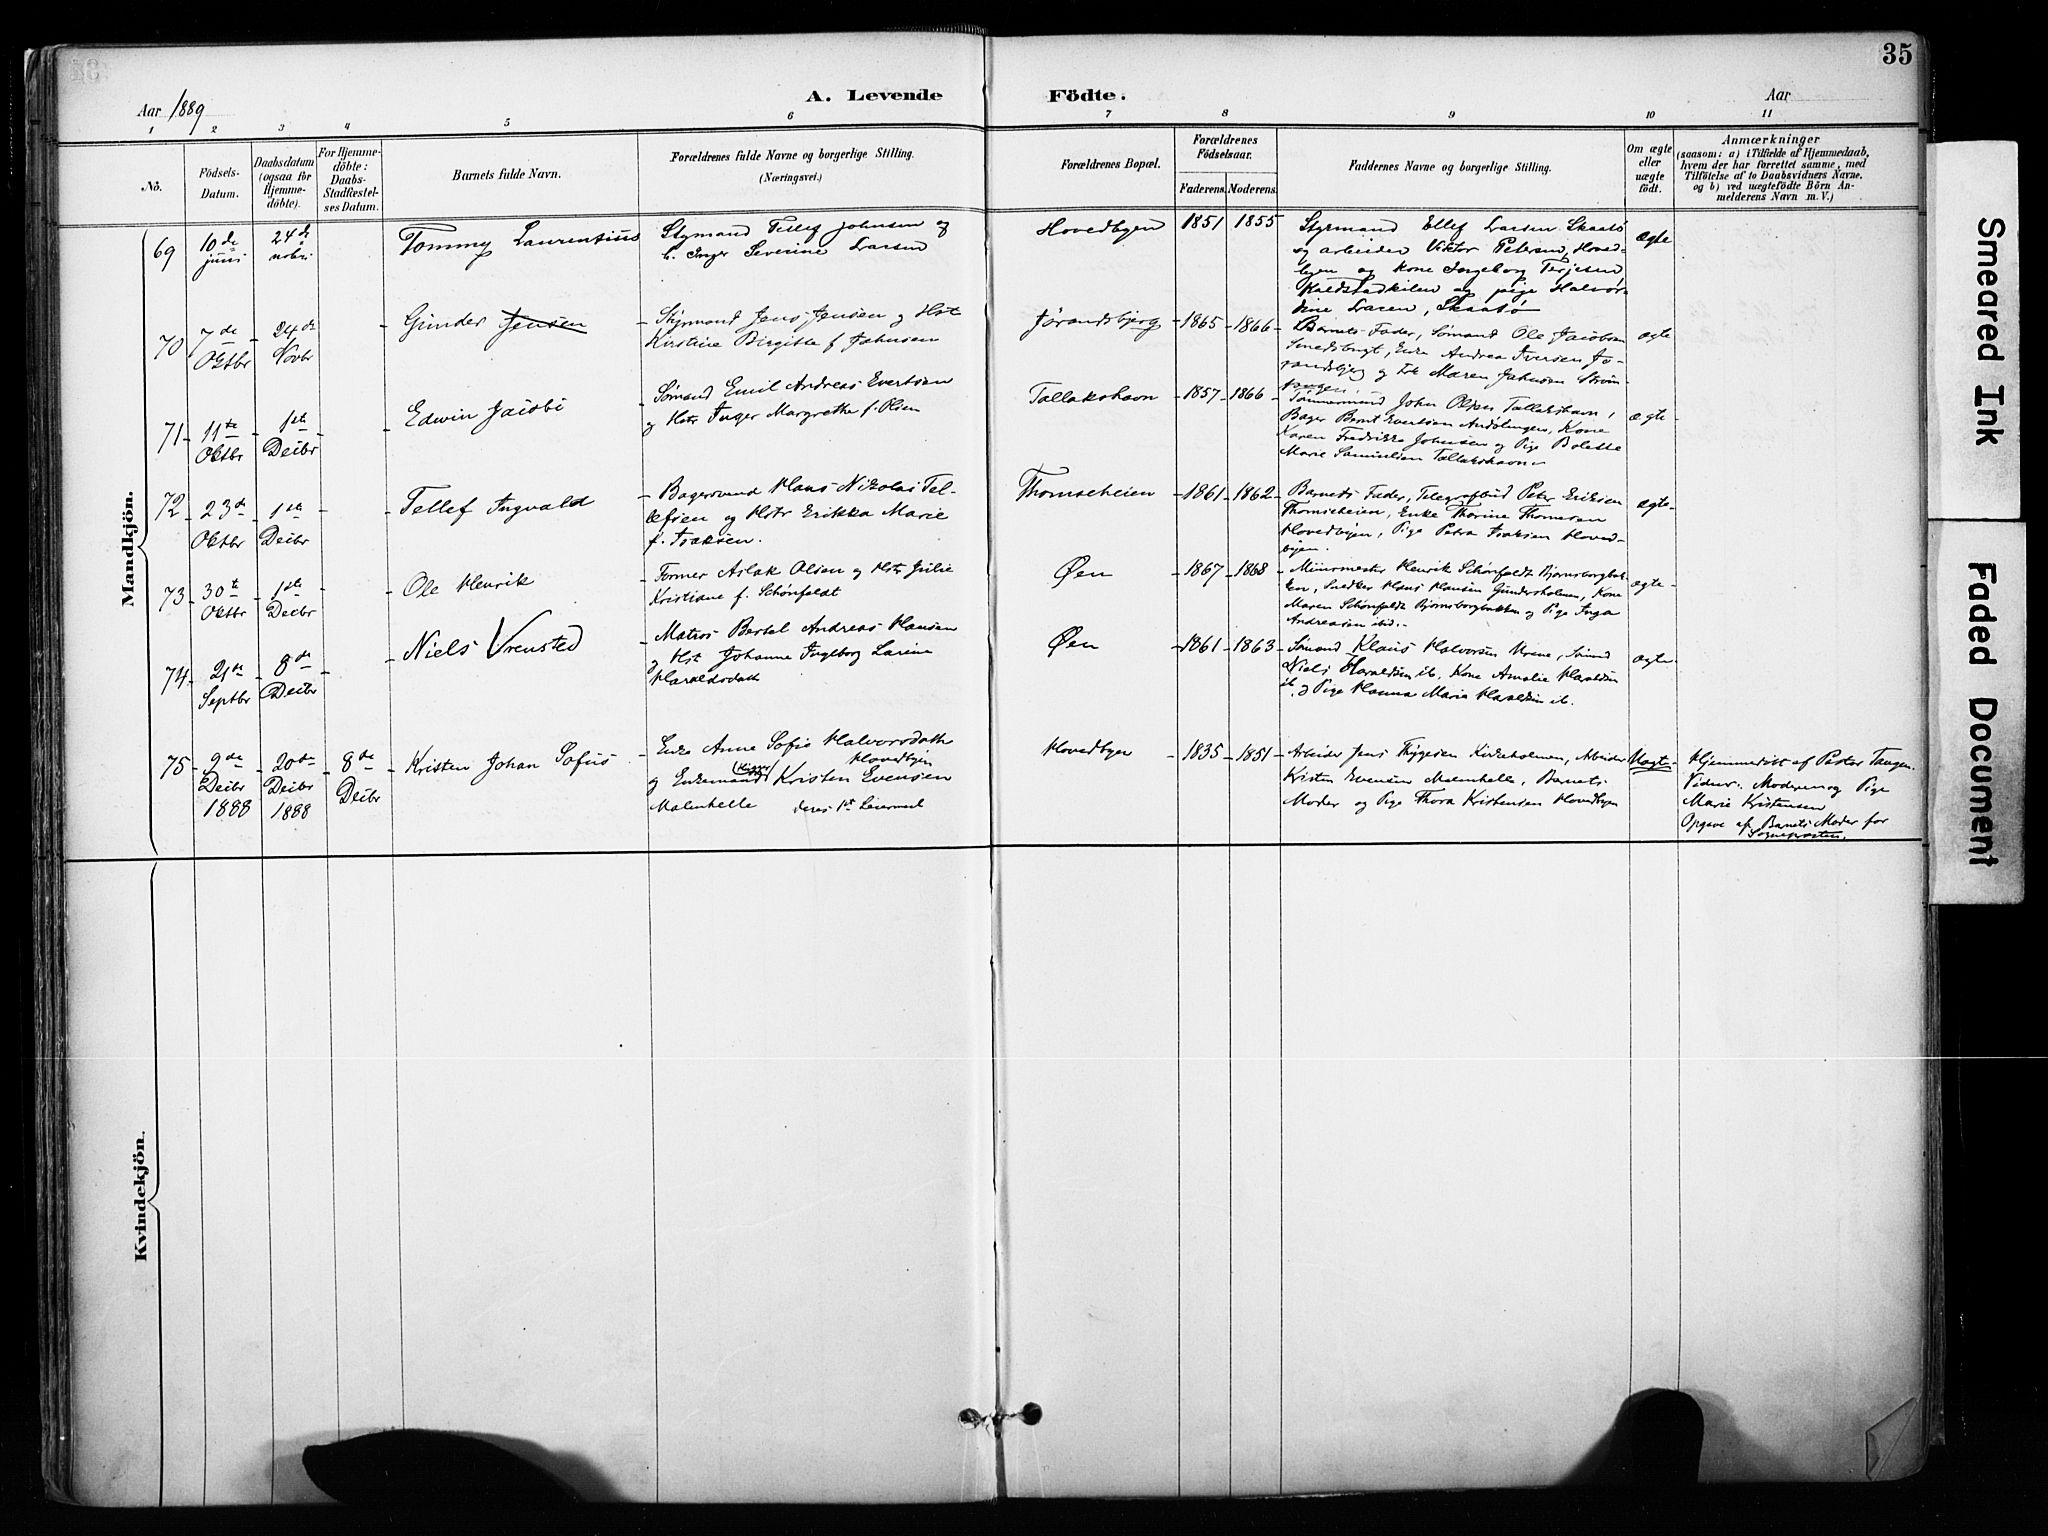 35
Aar 1889
A. Levende Födte.
Aar
1 2 3 4 5 6 7 8 9 10 11
No.
Födsels-
Datum.
Daabsdatum
(ogsaa for
Hjemme-
döbte).
For Hjemme-
döbte:
Daabs-
Stadfæstel-
ses Datum.
Barnets fulde Navn.
Forældrenes fulde Navne og borgerlige Stilling.
(Næringsvei.)
Forældrenes Bopæl.
Forældrenes
Födselsaar.
Faderens. Moderens.
Faddernes Navne og borgerlige Stilling.
Om ægte
eller
uægte
födt.
Anmærkninger
(saasom: a) i Tilfælde af Hjemmedaab,
hvem der har forrettet samme, med
Tilföielse af to Daabsvidners Navne.
og b) ved uægtefödte Börn An-
melderens Navn m. V.)
Mandkjön.
69
10de
juni
24de
nobr
Tommy Laurentius
Styrmand Tellef Johnsen og
h. Inger Severine Larsen
Hovedbyen
1851
1855
Styrmand Ellef Larsen Skaatö
og arbeider Viktor Petersen, Hoved-
byen og Kone Ingeborg Terjesen,
Kaldstadkilen og pige Halvor-
dine Larsen, Skaatö
ægte
70
7de
Oktbr
24de
Novbr
Gunder Jensen
Styrmand Jens Jensen og Hst
Kirstine Birgitte f Jahnsen
Jørandsbjerg
1865
1866
Barnets Fader, Sømand Ole Jacobsen
Smedsbugt, Enke Andrea Iversen Jø-
randsbjerg og Frk Maren Jahnsen Strøm-
tangen.
ægte
71
11te
Oktbr
1ste
Decbr
Edwin Jacobi
Sømand Emil Andreas Evertsen
og Hstr Inger Margrethe f. Olsen
Tallakshavn
1857
1866
Tømmermand John Olsen Tallakshavn,
Bager Bernt Evertsen Andølingen, Kone
Karen Fredrikke Johnsen og Pige Bolette
Marie Samuelsen Tallakshavn
ægte
72
23de
Oktbr
1ste
Decbr
Tellef Ingvald
Bagersvend Hans Nikolai Tel-
lefsen og Hstr Erikka Marie
f. Isaksen.
Thomseheien
1861
1862
Barnets Fader, Telegrafbud Peter Eriksen
Thomseheien, Enke Thorine Thomesen
Hovedbyen, Pige Petra Isaksen Hoved-
byen.
ægte
73
30te
Oktbr
1ste
Decbr
Ole Henrik
Former Aslak Olsen og Hst Julie
Kristiane f. Schönfeldt
Øen
1867
1868
Murermester Henrik Schönfeldt Bjørnsborgbak-
ken, Snedker Hans Hansen Gundersholmen, Kone
Maren Schönfeldt Bjørnsborgbakken og Pige Inga
Andreasen ibid.
ægte
74
21de
Septbr
8de
Decbr
Niels Vrensted
Matros Bertel Andreas Hansen
og Hst Johanne Ingeborg Larine
Haraldsdatt
Øen
1861
1863
Sømand Klaus Halvorsen, Sømand
Niels Haraldsen ib, Kone Amalie Haraldsen
ib, og Pige Hanna Marie Haraldsen ib.
ægte
75
9de
Decbr
1888
20de
Decbr
1888
8de
Decbr
Kristen Johan Sofus
Enke Anne Sofie Halvorsdatt
Hovedbyen
og Enkemand Kristen Evensen
Malmhelle deres 1st Leiermaal
Hovedbyen
1835
1851
Arbeider Jens Thygesen Kirkeholmen, Arbeider
Kristen Evensen Malmhelle, Barnets
Moder og Pige Thora Kristensen Hovedbyen
Uægte
Hjemmedöbt af Pastor Tangen.
Vidner: Moderen og Pige
Marie Kristensen
Opgave af Barnets Moder for
Sognepræsten.
Kvindekjön.
Smeared Ink
Faded Document